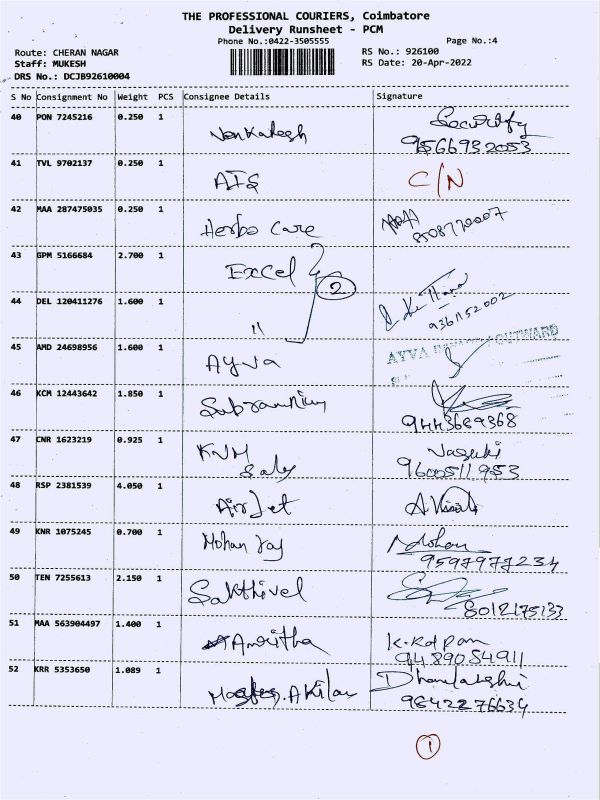 THE PROFESSIONAL COURIERS, Coimbatore
Delivery Runsheet - PCM
Phone No.:0422-3505555 Page No.:4
Route: CHERAN NAGAR RS No.: 926100
Staff: MUKESH RS Date: 20-Apr-2022
DRS No.: DCJB92610004
S No Consignment No Weight PCS Consignee Details Signature
40 PON 7245216 0.250 1 Venkatesh Security
9566932053
41 TVL 9702137 0.250 1 AIS C/N
42 MAA 287475035 0.250 1 Herbo Care
43 GPM 5166684 2.700 1 Excel
2
44 DEL 120411276 1.600 1 "
9361152002
45 AMD 24698956 1.600 1 Ayva AYVA OUTWARD
46 KCM 12443642 1.850 1
9443669368
47 CNR 1623219 0.925 1 KNM Vasuki
9600511953
48 RSP 2381539 4.050 1 Air Jet
49 KNR 1075245 0.700 1 Mohan raj Mohan
9597977234
50 TEN 7255613 2.150 1 Sakthivel
8012175133
51 MAA 563904497 1.400 1 Amritha
9489054911
52 KRR 5353650 1.089 1 Akilan
9842276634
1